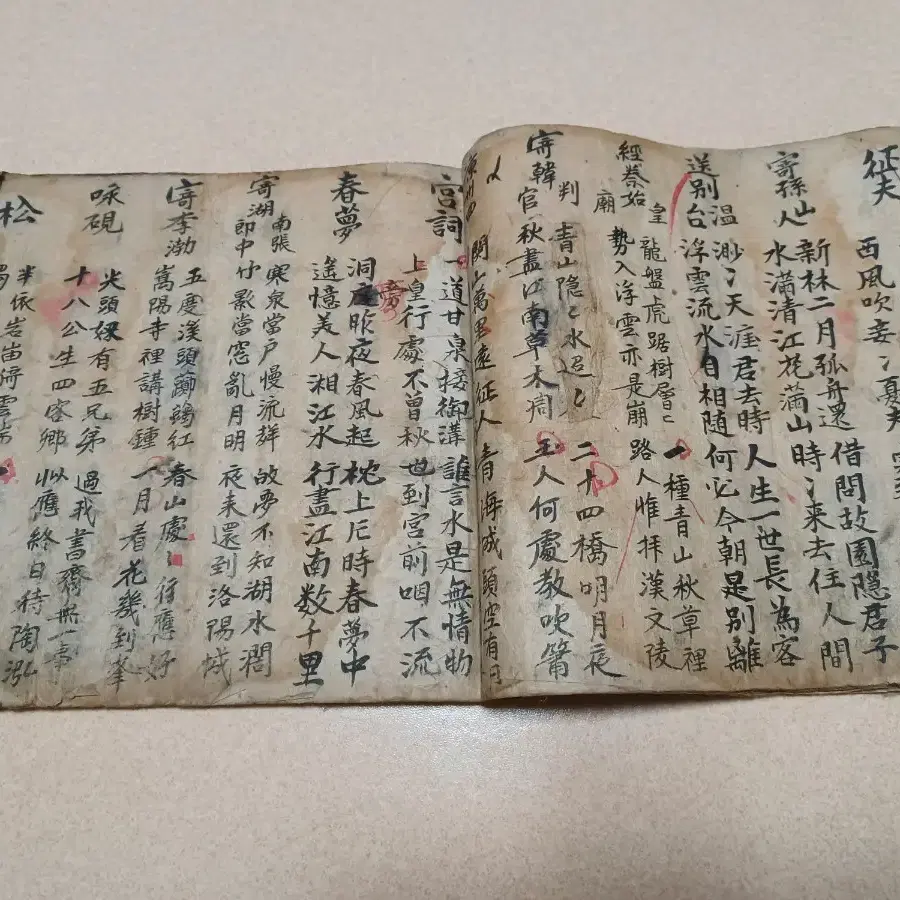 征夫
西風吹妾〻憂夫
寄孫山人
新林二月孤舟還 借問故園隱君子
水滿清江花滿山 時〻来去住人間
送別台溫
渺〻天涯君去時 人生一世長為客
浮雲流水自相随 何必今朝是別離
經秦始皇廟
龍盤虎踞樹層〻 一種青山秋草裡
勢入浮雲亦是崩 路人惟拝漢文陵
寄韓判官
青山隐〻水迢〻 二十四橋明月夜
秋盡江南草木凋 玉人何處教吹簫
関山萬里遠征人 青海城頭空有月
宮詞
一道甘泉接御溝 誰言水是無情物
上皇行處不曾秋 也到宮前咽不流
春夢
洞房昨夜春風起 枕上片時春夢中
遙憶美人湘江水 行盡江南数千里
寄湖南張郎中
寒泉當户慢流群 故夢不知湖水濶
竹影當窓亂月明 夜来還到洛陽城
寄李渤
五度溪頭躑躅紅 春山處〻行應好
嵩陽寺裡講樹鍾 一月看花幾到峯
咏硯
光頭 有五兄弟 過我書齋無一事
十八公生四家鄉 似應終日待陶泓
松
半依岩 倚雲